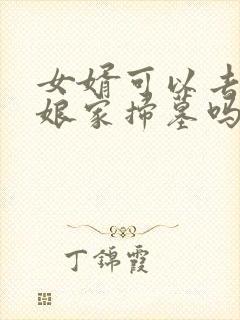 女婿可以去
娘家扫墓吗
丁錦霞